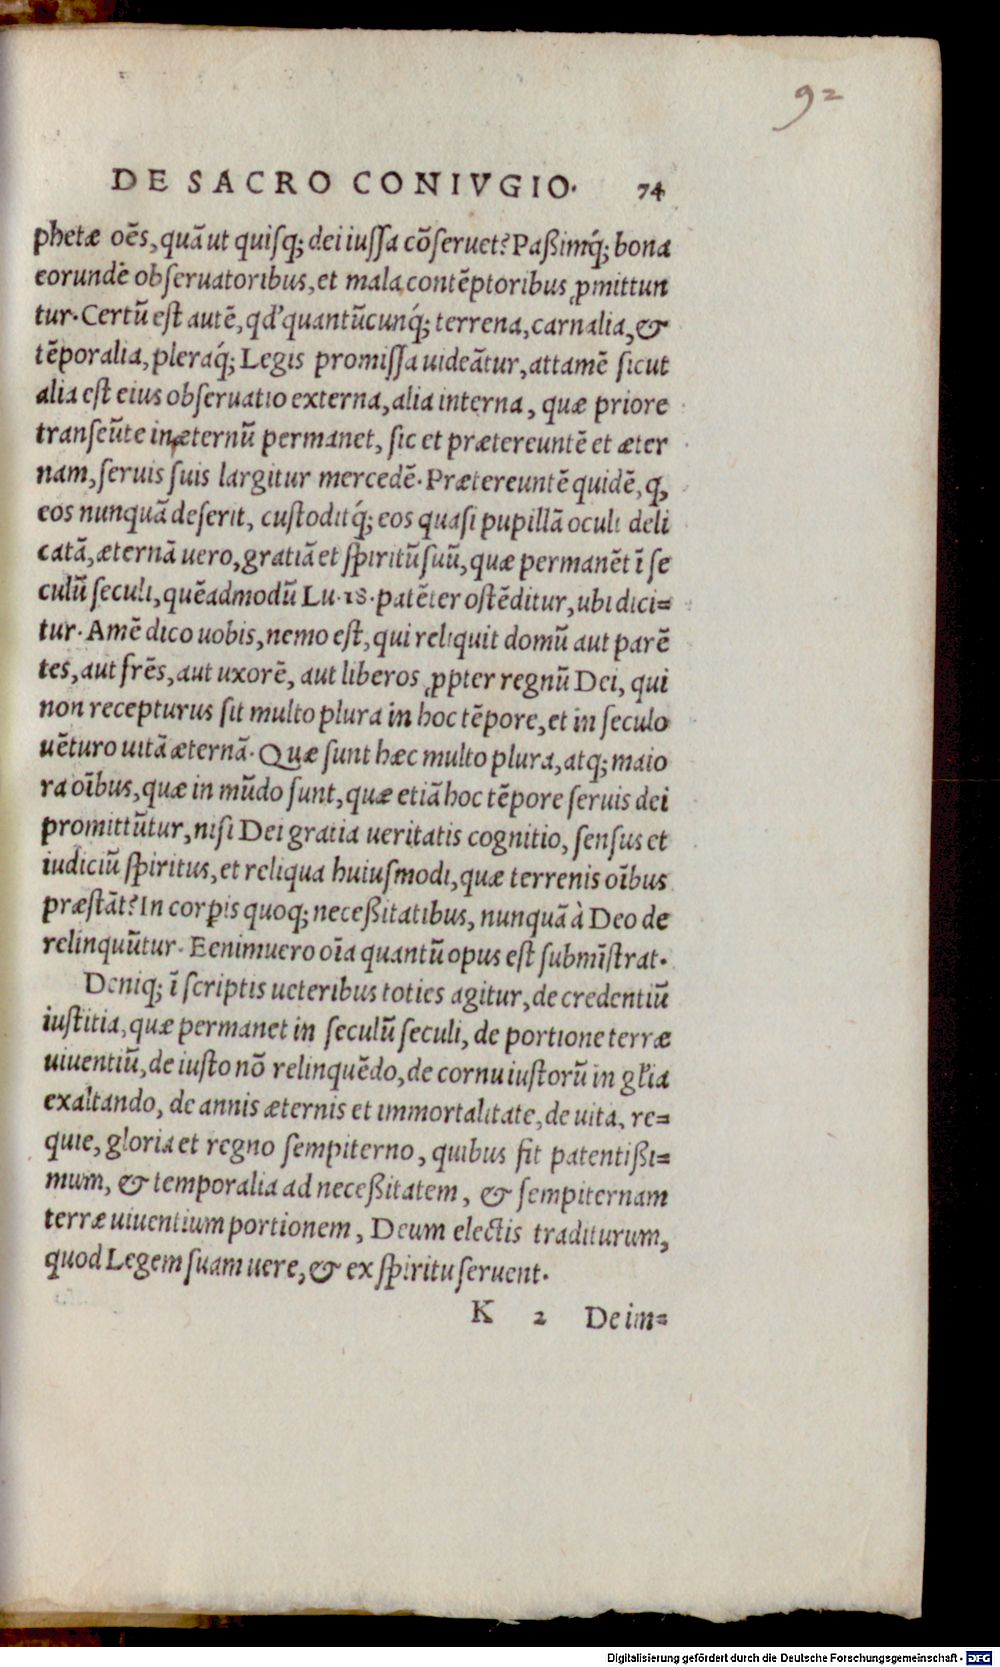 92
DE SACRO CONIVGIO. 74
phetæ oẽs, quã ut quisq; dei iussa cõseruet? Paßimq́; bona
eorundẽ obseruatoribus, et mala contẽptoribus ꝓmittun
tur. Certũ est autẽ, qđ quantũcunq́; terrena, carnalia, &
tẽporalia, pleraq́; Legis promissa uideãtur, attamẽ sicut
alia est eius obseruatio externa, alia interna, quæ priore
transeũte inæternũ permanet, sic et prætereuntẽ et æter
nam, seruis suis largitur mercedẽ. Prætereuntẽ quidẽ, ꝙ
eos nunquã deserit, custoditq́; eos quasi pupillã oculi deli
catã, æternã uero, gratiã et spiritũ suũ, quæ permanẽt ĩ se
culũ seculi, quẽadmodũ Lu. 18. patẽter ostẽditur, ubi dici=
tur. Amẽ dico uobis, nemo est, qui reliquit domũ aut parẽ
tes, aut frẽs, aut uxorẽ, aut liberos ꝓpter regnũ Dei, qui
non recepturus sit multo plura in hoc tẽpore, et in seculo
uẽturo uitã æternã. Quæ sunt hæc multo plura, atq; maio
ra oĩbus, quæ in mũdo sunt, quæ etiã hoc tẽpore seruis dei
promittũtur, nisi Dei gratia ueritatis cognitio, sensus et
iudiciũ spiritus, et reliqua huiusmodi, quæ terrenis oĩbus
præstãt? In corꝑis quoq; neceßitatibus, nunquã à Deo de
relinquũtur. Eenimuero oĩa quantũ opus est submĩstrat.
Deniq; ĩ scriptis ueteribus toties agitur, de credentiũ
iustitia, quæ permanet in seculũ seculi, de portione terræ
uiuentiũ, de iusto nõ relinquẽdo, de cornu iustorũ in gl̃ia
exaltando, de annis æternis et immortalitate, de uita, re=
quie, gloria et regno sempiterno, quibus fit patentißi=
mum, & temporalia ad neceßitatem, & sempiternam
terræ uiuentium portionem, Deum electis traditurum,
quod Legem suam uere, & ex spiritu seruent.
K 2 De im=
Digitalisierung gefördert durch die Deutsche Forschungsgemeinschaft - DFG